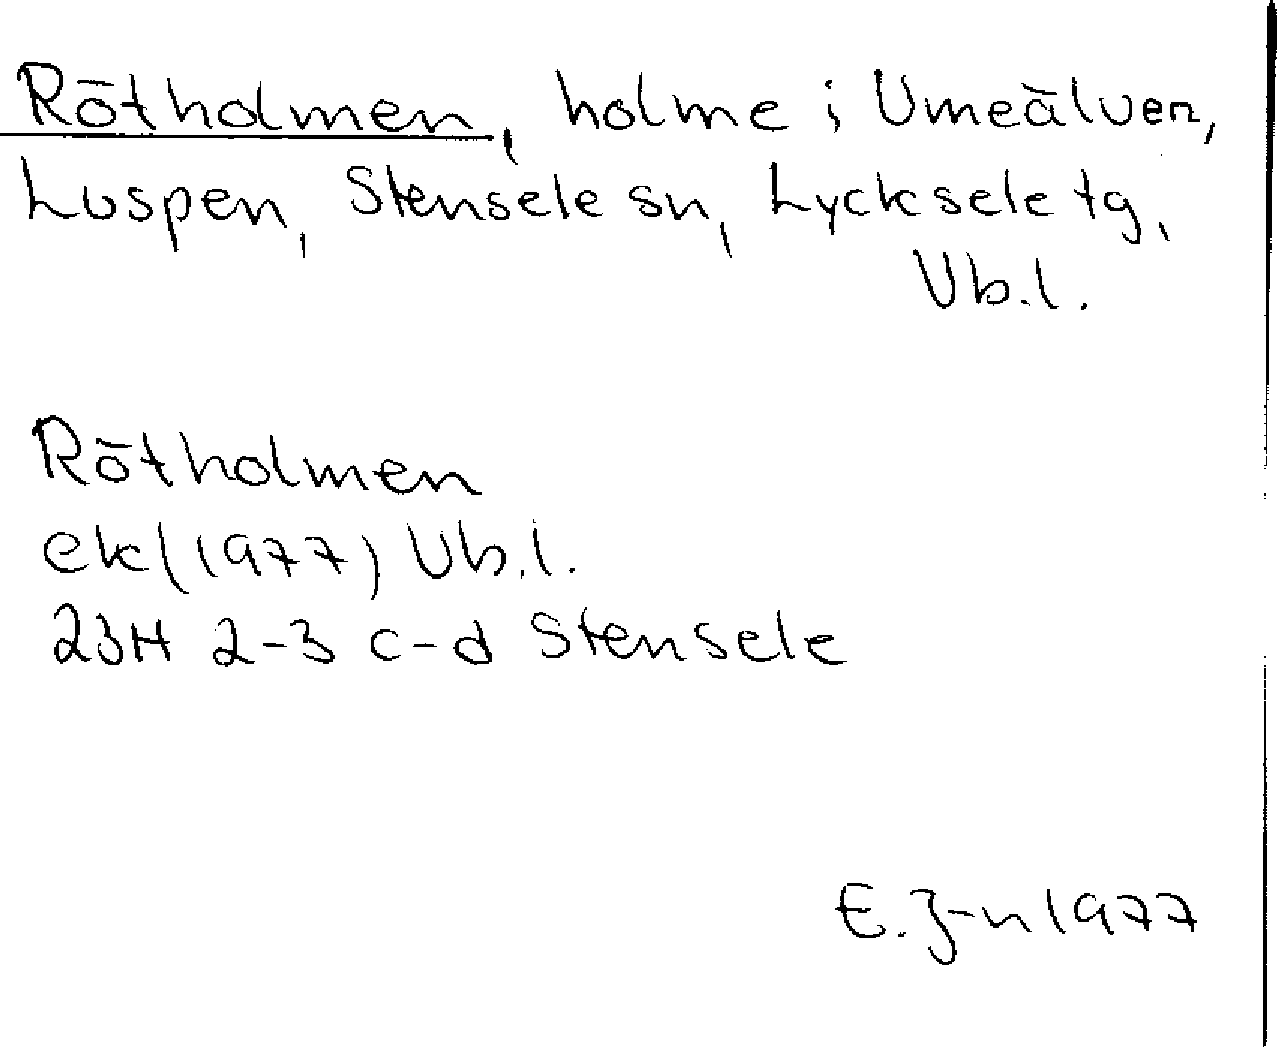 Rötholmen, holme i Umeälven,
Luspen, Stensele sn, Lycksele tg,
Vb.l.
Rötholmen
ek (1977) Vb.l.
23H 2-3 c-d Stensele
E. J-n 1977